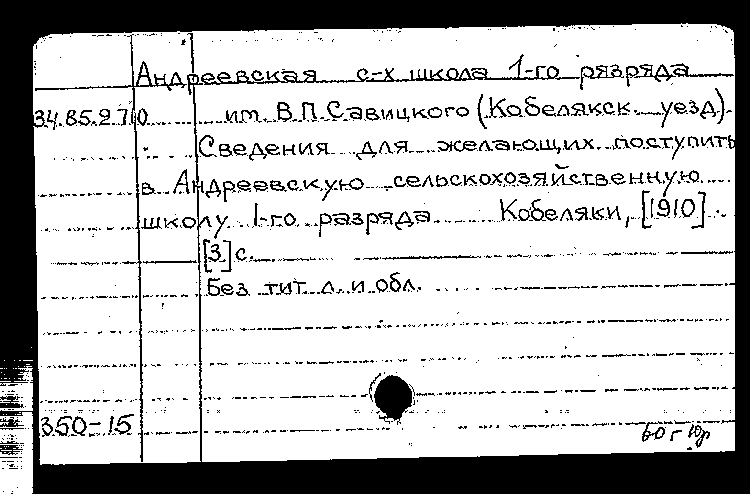 Андреевская с-х школа 1-го рязряда
34.85.2710 им. В.П.Савицкого (Кобелякск. уезд).
Сведения для желающих поступить
в Андреевскую сельскохозяйственную
школу 1-го разряда Кобеляки, [1910].
[3] с.
Без тит л. и обл.
350-15
60 г